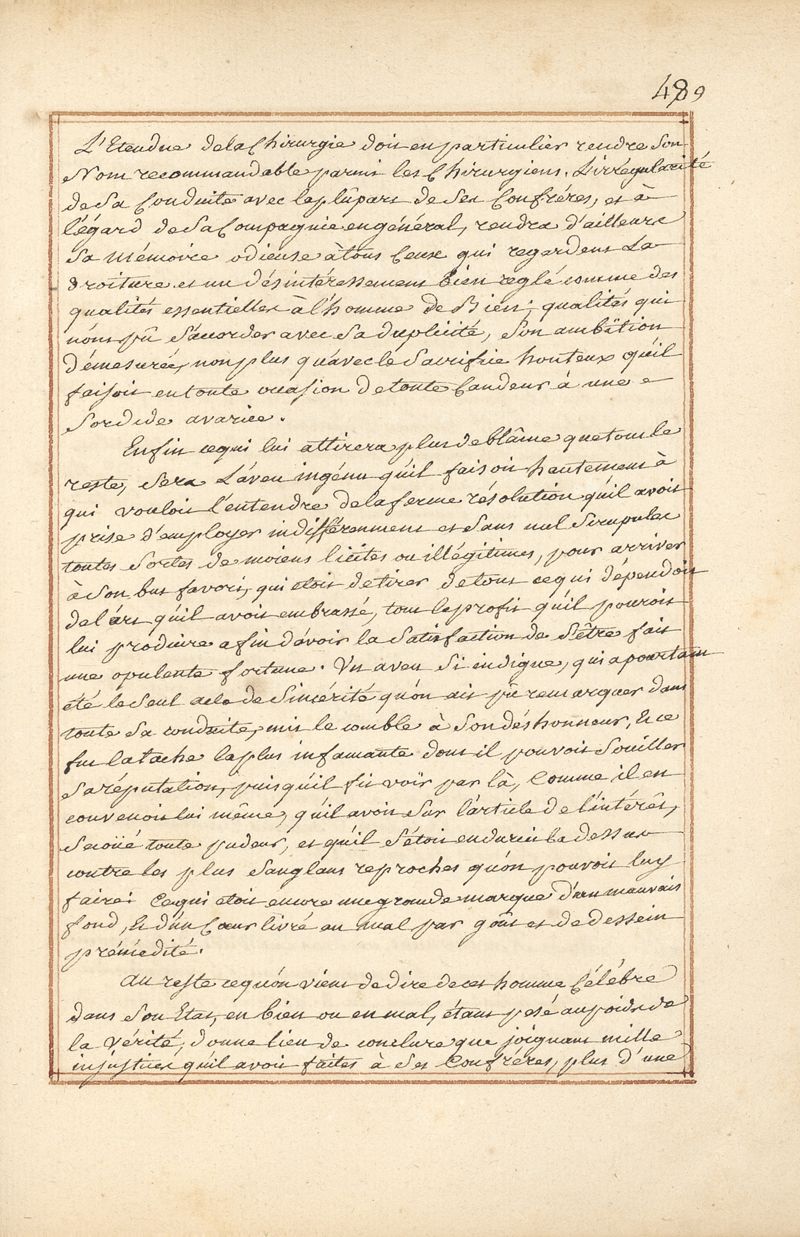 489
L'Etendue de la Chirurgie doit en particulier rendre Son
Nom recommandable parmi les Chirurgiens. L'irrégularité
de Sa Conduite avec la plûpart de Ses Confréres, et à
l'égard de Sa Compagnie en général, rendra d'ailleurs
Sa mémoire odieuse à tous Ceux qui regardent La
droiture et un désintéressement bien reglé comme des
qualités essentielles à l'homme de Bien; qualités qui
n'ont pû S'accorder avec Sa duplicité, Son ambition
démesurée, non plus qu'avec le Sacrifice honteux qu'il
faisoit en toute occasion de toute Candeur à une
Sordide avarice.
Enfin ce qui lui attirera plus de blâme que tout le
reste, Sera L'aveu ingénu qu'il faisoit hautement à
qui vouloit l'entendre de la ferme résolution qu'il avoit
prise d'employer indifféremment et Sans nul Scrupule
toutes Sortes de moiens licites ou illégitimes, pour arriver
à Son but favori, qui étoit de tirer de tout ce qui dépendoit
de l'art qu'il avoit embrassé, tout le profit qu'il pouroit
lui produire afin d'avoir la Satisfaction de S'être fait
une opulente fortune. Un aveu Si indigne, qui a pourtant
été le Seul acte de Sincérité qu'on ait pû remarquer dans
toute Sa conduite, mit le comble à Son déshonneur, Et ce
fut la tache la plus infamante dont il pouvoit Souiller
Sa réputation, puisqu'il fit voir par là, Comme il en
convenoit lui même, qu'il avoit Sur l'article de l'intérêt,
Secoüé toute pudeur, et qu'il S'étoit endurci la dessus
contre les plus Sanglans reproches qu'on pouvoit luy
faire: Ce qui étoit encore une grande marque d'un mauvais
fond, Et d'un Cœur livré au mal par goût et de dessein
prémédité.
Au reste ce qu'on vient de dire de cet homme Célébre
dans Son Etat, en bien ou en mal, étant pesé au poids de
la Vérité, donne lieu de conclure que joignant mille
injustices qu'il avoit faites à Ses Confréres, plus d'une